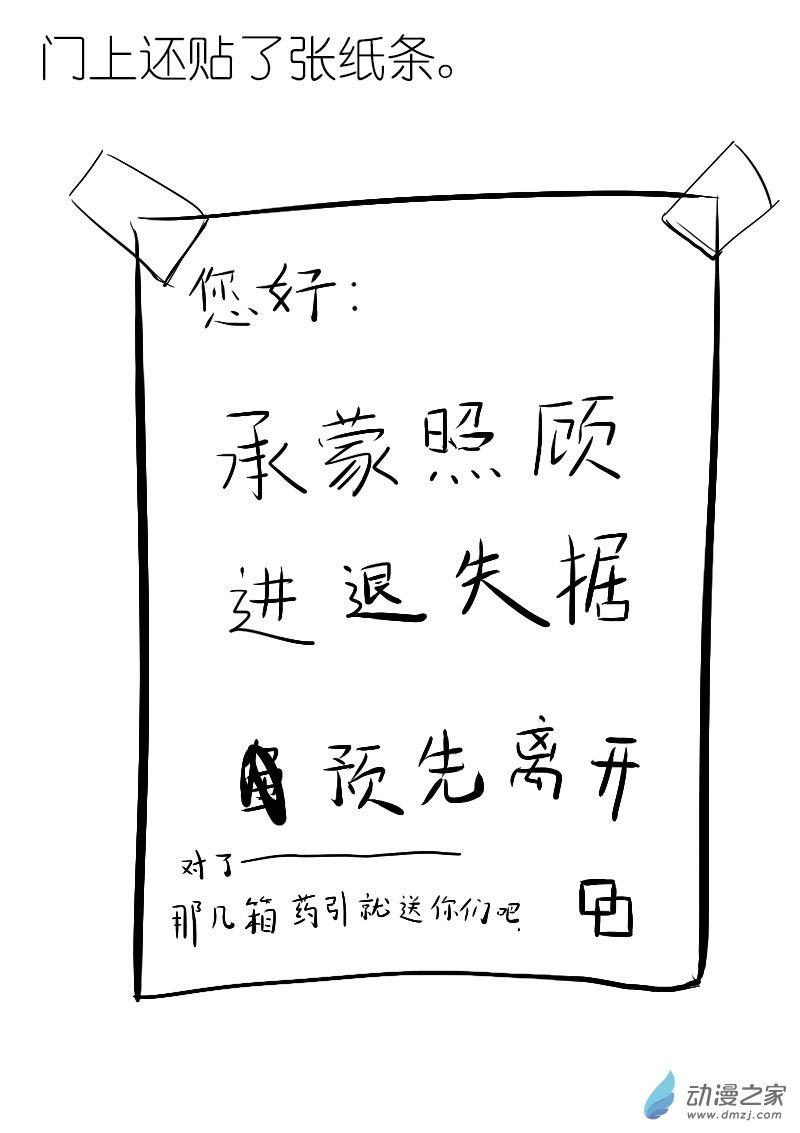 门上还贴了张纸条。
您好：
承蒙照顾
进退失据
预先离开
对了
那几箱药引就送你们吧.
动漫之家
www.dmzj.com